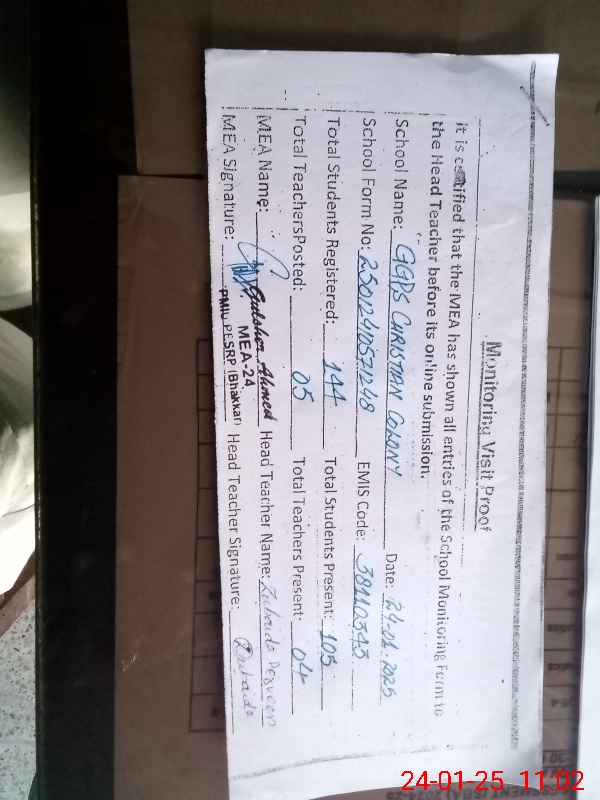 Monitoring Visit Proof
it is certified that the MEA has shown all entries of the School Monitoring Form to
the Head Teacher before its online submission.
School Name: GGPS CHRISTIAN COLONY Date: 24-01-2025
School Form No: 25012410571248 EMIS Code: 38110343
Total Students Registered: 144 Total Students Present: 105
Total TeachersPosted: 05 Total Teachers Present: 04
MEA Name: Gulsher Ahmed Head Teacher Name: Zubaida Perveen
MEA Signature: MEA-24 Head Teacher Signature: Zubaida
PMIU PESRP (Bhakkar)
24-01-25 11:02